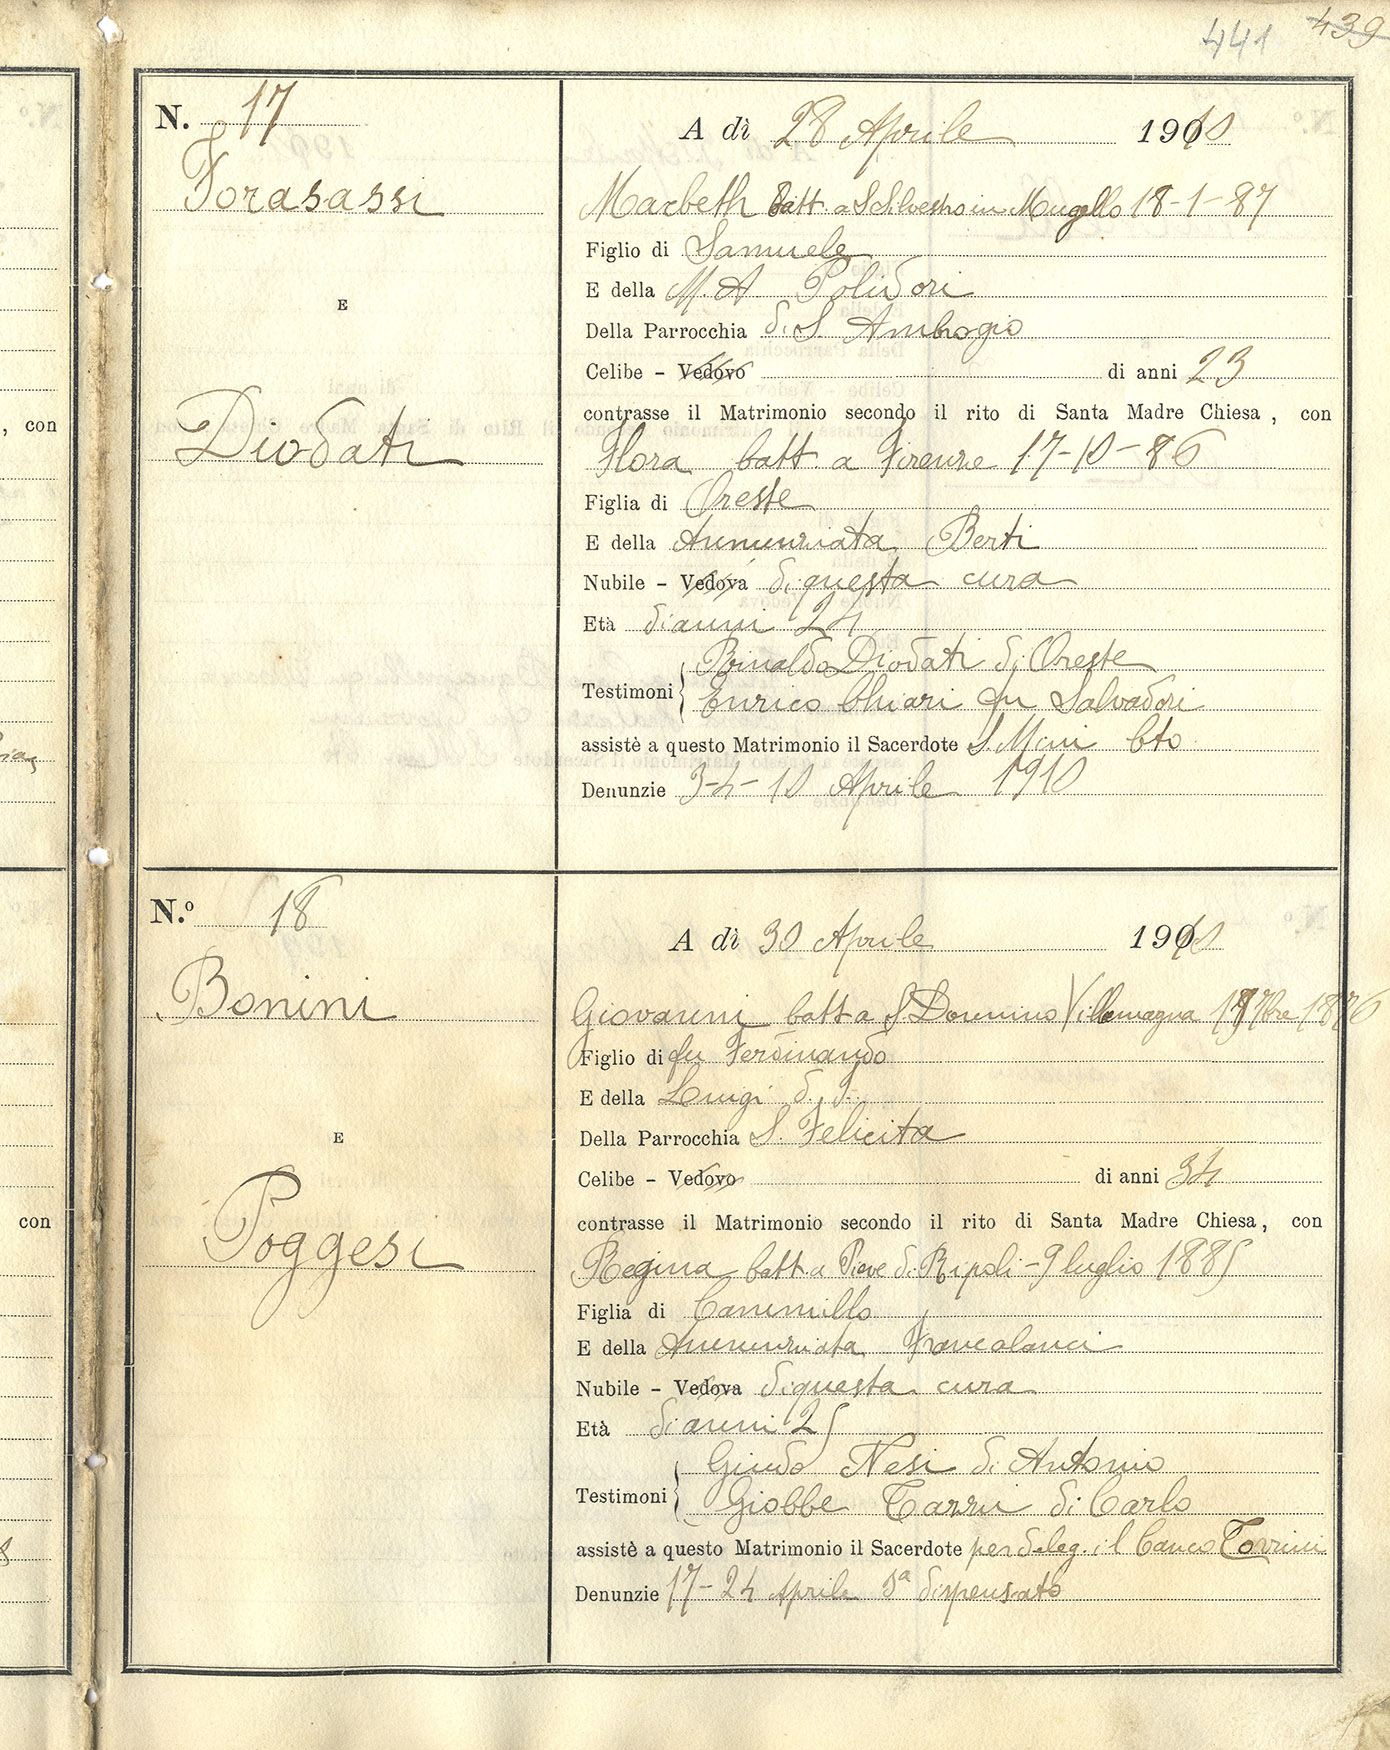 441 439
N. 17
Forasassi
E
Diodati
A dì 28 Aprile 1910
Macbeth batt. a S Silvestro in Mugello 18-1-87
Figlio di Samuele
E della M. A Polidori
Della Parrocchia di S. Ambrogio
Celibe - Vedovo di anni 23
contrasse il Matrimonio secondo il rito di Santa Madre Chiesa, con
Flora batt. a Firenze 17-10-86
Figlia di Oreste
E della Annunziata Berti
Nubile - Vedova di questa cura
Età di anni 24
Testimoni { Rinaldo Diodati di Oreste
Enrico Chiari fu Salvadori
assistè a questo Matrimonio il Sacerdote
Denunzie 3-4-10 Aprile 1910
N.º 18
Bonini
E
Poggesi
A dì 30 Aprile 1910
Giovanni batt a S. Donnino Villamagna 1876
Figlio di fu Ferdinando
E della Luigi
Della Parrocchia S. Felicita
Celibe - Vedovo di anni 34
contrasse il Matrimonio secondo il rito di Santa Madre Chiesa, con
Regina batt a Pieve di Ripoli - 9 luglio 1885
Figlia di Cammillo
E della Annunziata Francalanci
Nubile - Vedova di questa cura
Età di anni 25
Testimoni { Guido Nesi di Antonio
Giobbe Tarzi di Carlo
assistè a questo Matrimonio il Sacerdote per deleg. il Torrini
Denunzie 17-24 Aprile 3ª dispensato
, con
con